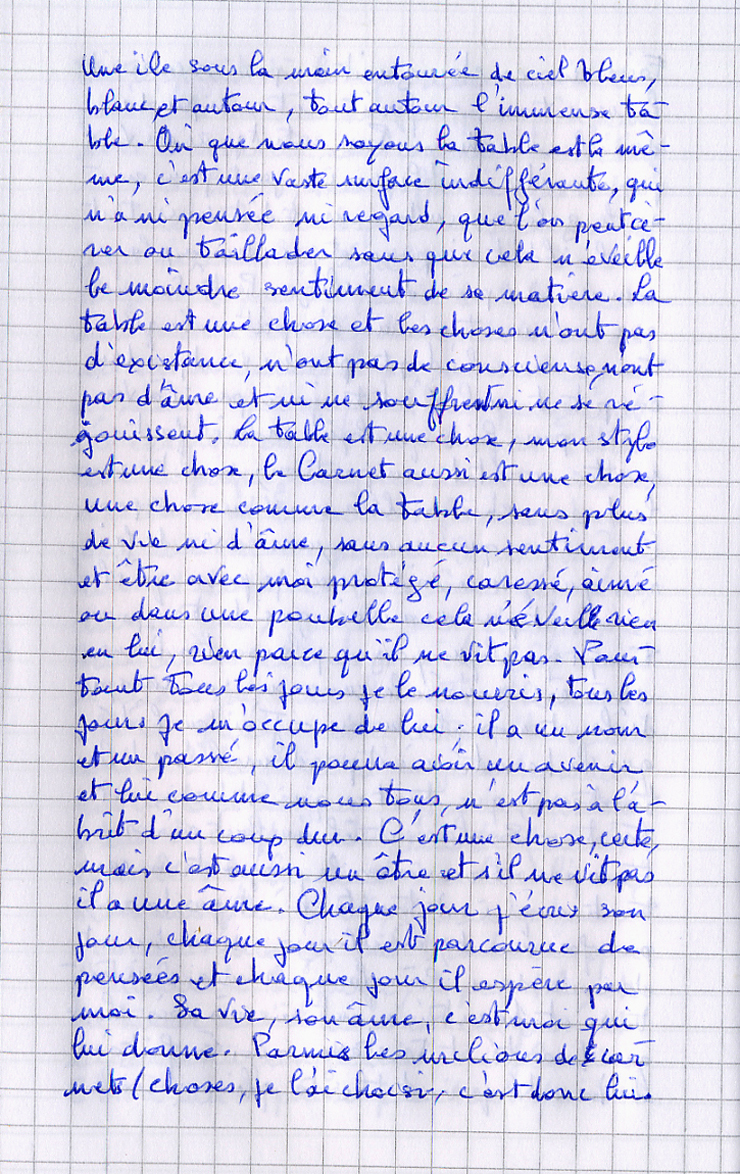 Une ile sous la main entourée de ciel bleus,
blanc, et autour, tout autour l'immense ta-
ble. Où que nous soyons la table est la mê-
me, c'est une vaste surface indifférante, qui
n'a ni pensée ni regard, que l'on peut ci-
rer ou taillader sans que cela n'éveille
le moindre sentiment de sa matière. La
table est une chose et les choses n'ont pas
d'existance, n'ont pas de consciense, n'ont
pas d'âme et ni ne souffrent ni ne se ré-
jouissent. La table est une chose, mon stylo
est une chose, le Carnet aussi est une chose,
une chose comme la table, sans plus
de vie ni d'âme, sans aucun sentiment
et être avec moi protégé, caressé, aimé
ou dans une poubelle cela n'éveille rien
en lui, rien parce qu'il ne vit pas. Pour-
tant tous les jours je le nourris, tous les
jours je m'occupe de lui ; il a un nom
et un passé, il pourra avoir un avenir
et lui comme nous tous, n'est pas à l'a-
brit d'un coup dur. C'est une chose, certe,
mais c'est aussi un être et s'il ne vit pas
il a une âme. Chaque jour j'écris son
jour, chaque jour il est parcourue de
pensées et chaque jour il espère par
moi. Sa vie, son âme, c'est moi qui
lui donne. Parmis les milions de car-
nets / choses, je l'ai choisi, c'est donc lui.